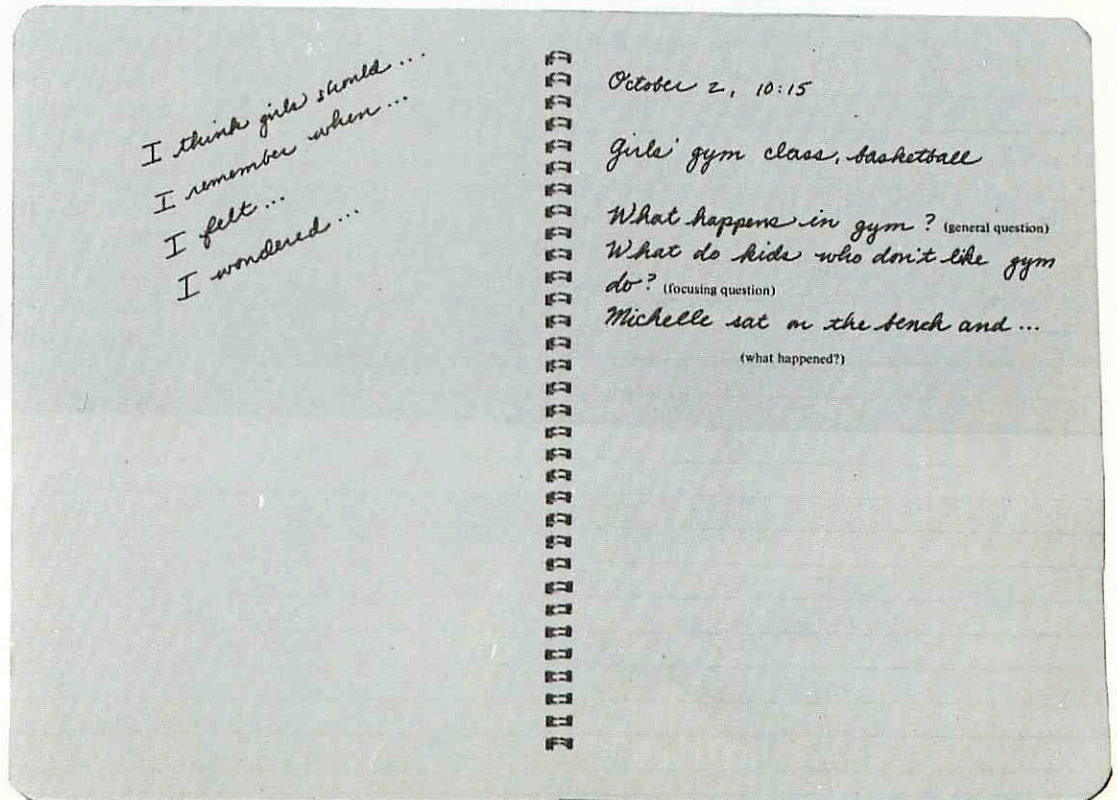 I think girls should...
I remember when...
I felt...
I wondered...
October 2, 10:15
Girls' gym class, basketball
What happens in gym? (general question)
What do kids who don't like gym
do? (focusing question)
Michelle sat on the bench and...
(what happened?)